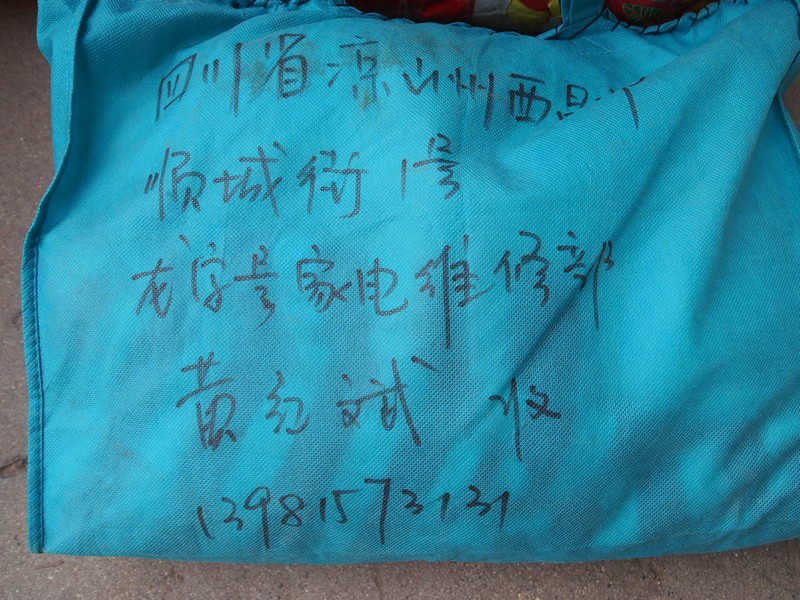 四川省凉山州西昌市
顺城街1号
龙字号家电维修部
黄红斌 收
13981573131